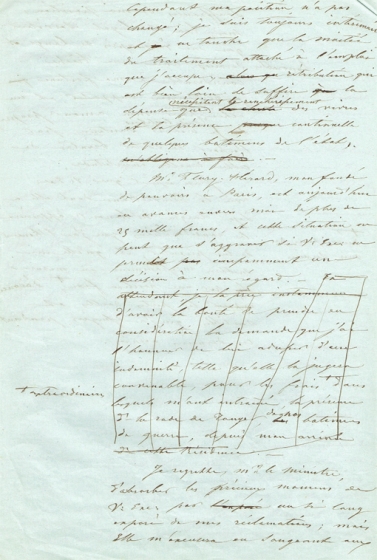 Cependant ma position n'a pas
changé; je suis toujours intérimaire
et ne touche que la moitié
du traitement attaché à l'emploi
que j'occupe, rétribution qui
est bien loin de suffire à la
dépense que des vivres
et la présence continuelle
de quelques batimens de l'état,
Mr. Flury Hérard, mon fondé
de pouvoirs à Paris, est aujourd'hui
en avances envers moi de plus de
25 mille francs, et cette situation ne
peut que s'aggraver si V. Exc. ne
prend pas un
décision à mon égard. — En
attendant je la prie instamment
d'avoir la bonté de prendre en
considération la demande que j'ai
l'honneur de lui adresser d'une
indemnité, telle qu'elle la jugera
convenable, pour les frais dans
extraordinaires
lesquels m'ont entrainé la présence
Sr la rade de Tanger des batimens
de guerre, depuis mon arrivée
de cette Résidence
Je regrette, Mr. le Ministre,
d'absorber les précieux momens de
V. Exc. par un si long
exposé de mes réclamations; mais
Elle m'excusera en songeant aux